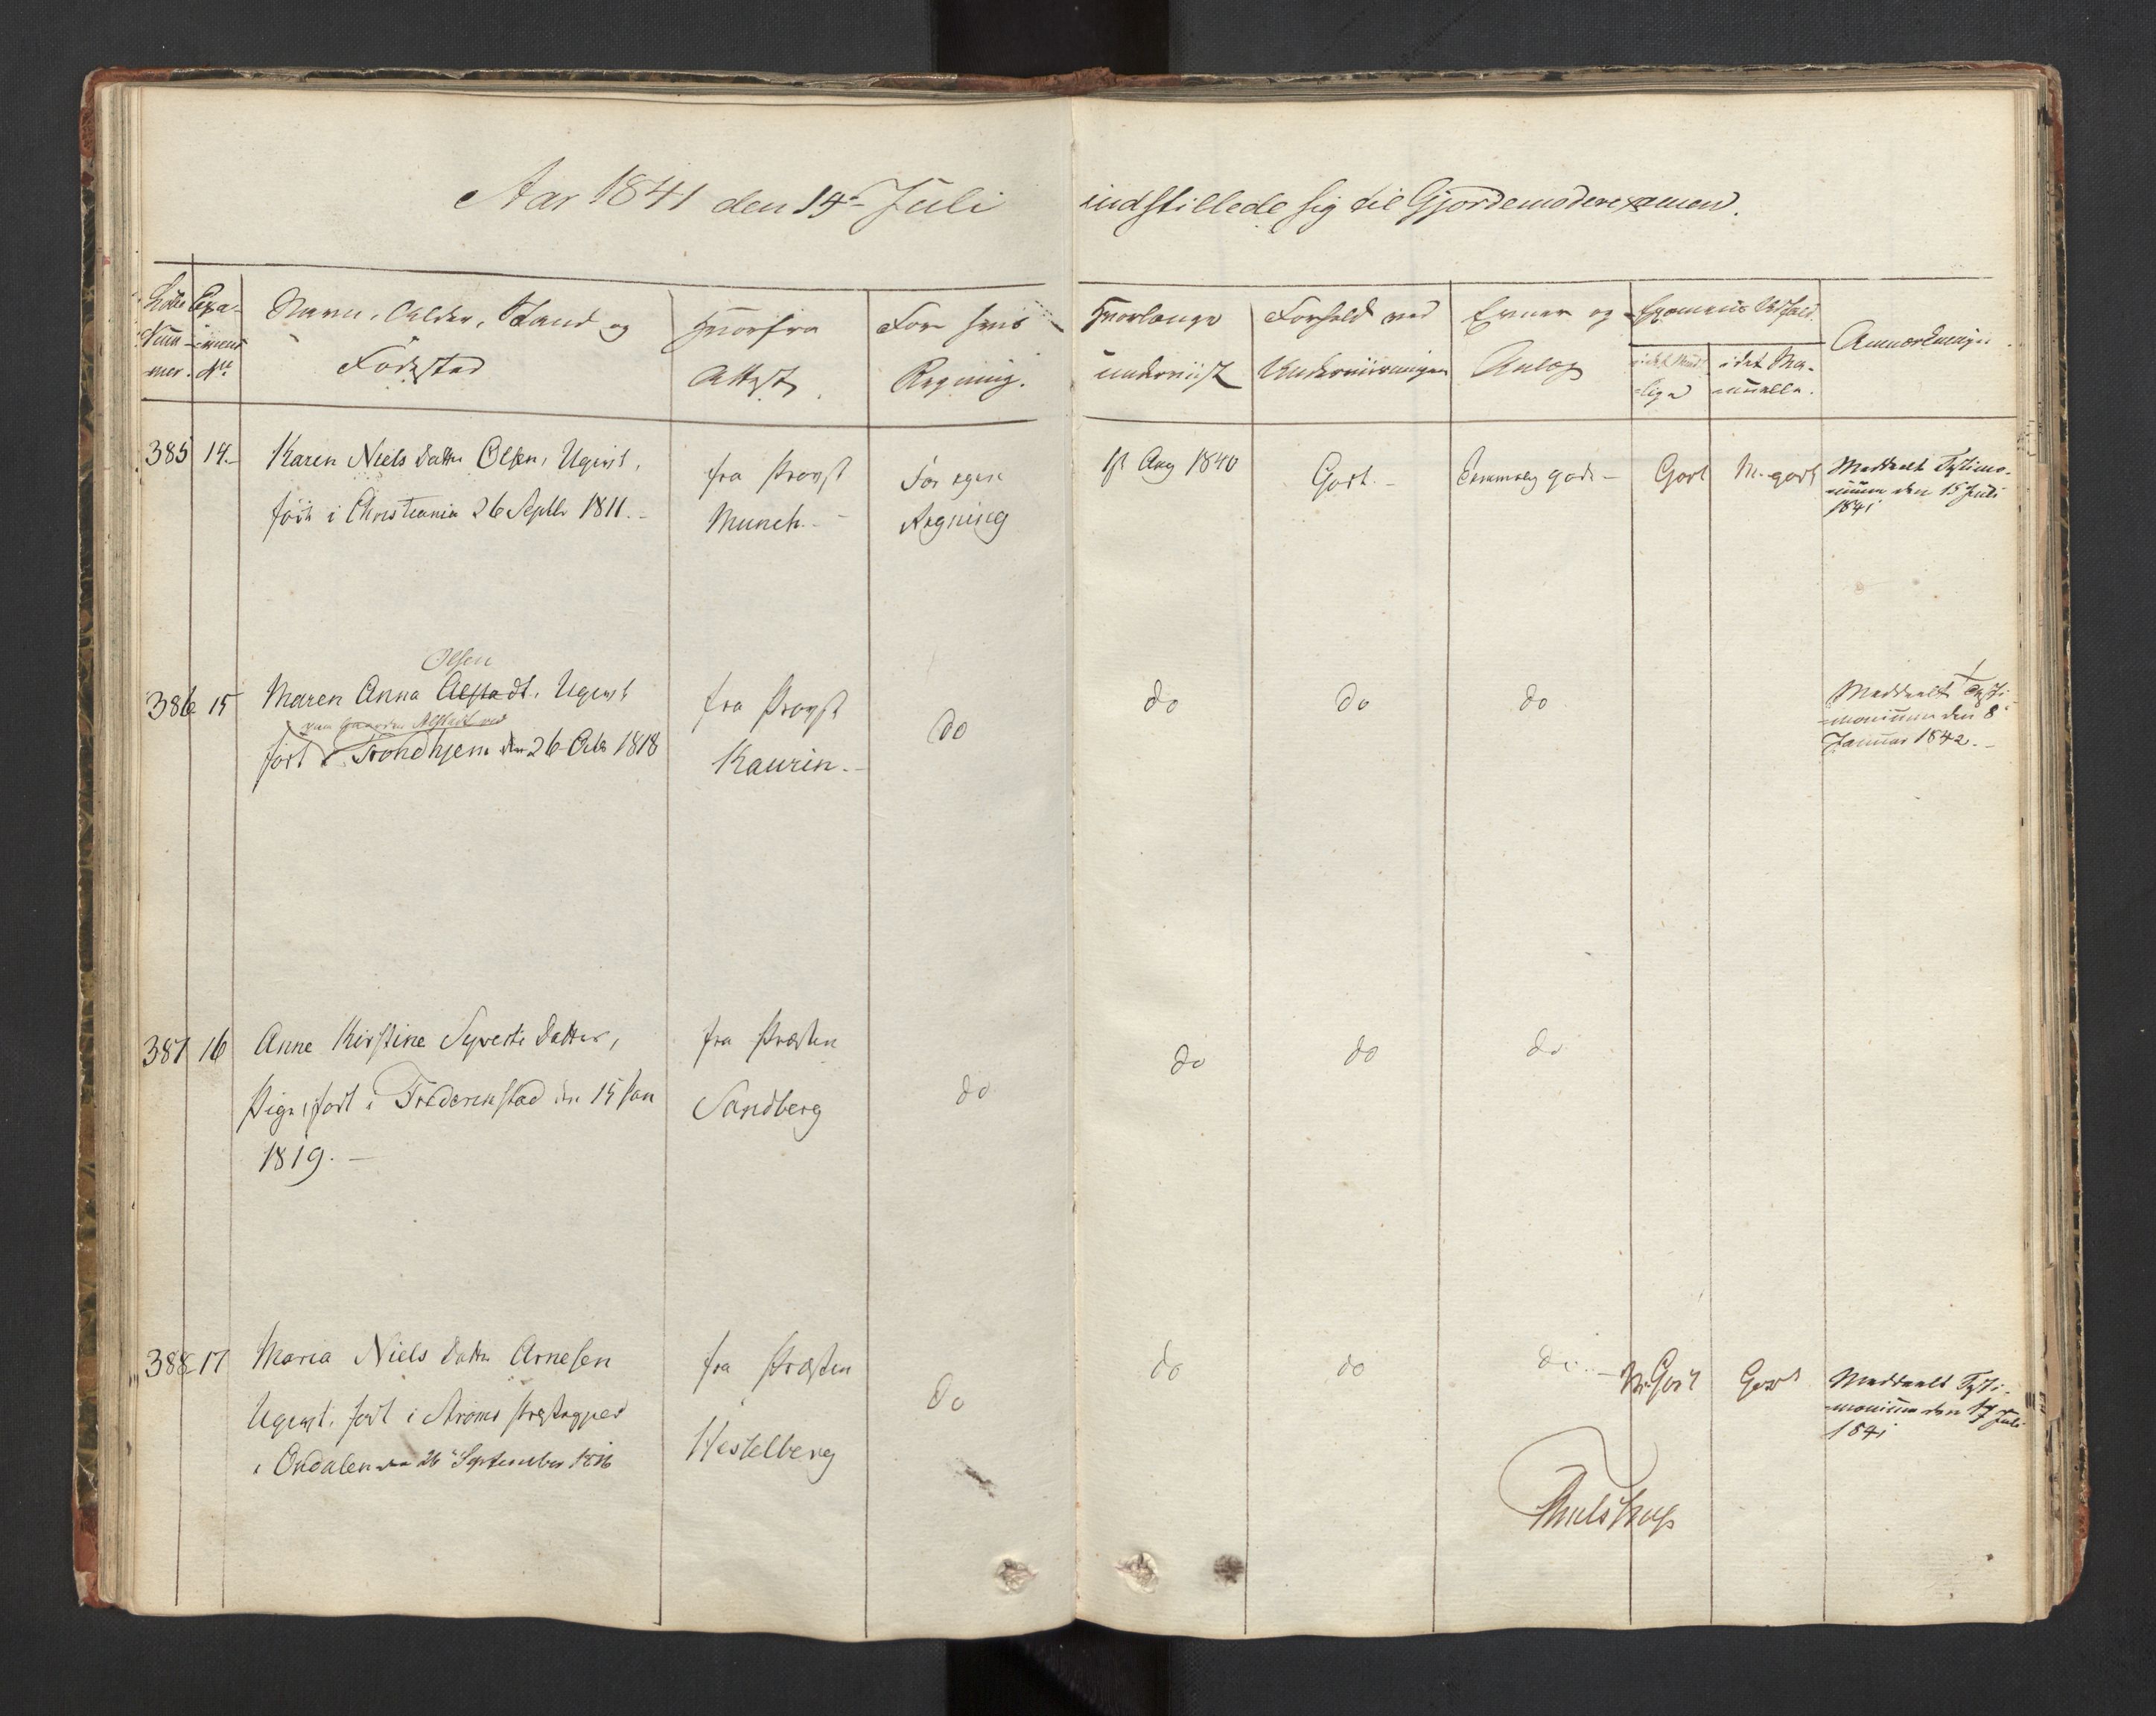 Aar 1841 den 14de Juli indstillede sig til Gjordemoderexamen.
Løbe Num- mer.
Exa- mens No
Navn, Alder, Stand og
Fødested
Hvorfra
Attest,
For hvis
Regning.
Hvorlænge
underviist
Forhold ved
Underviisningen
Evner og
Anlæg
Examens Udfald.
i det Mundt-
lige
i det Ma-
nuelle.
Anmærkninger
385 14.
Karen Niels Datter Olsen, Ugivt,
født i Christiania 26 Septbr 1811.-
fra Provst
Munch.-
For egen
Regning
1st Aug 1840
Godt.-
Temmelig gode-
Godt
M. godt
Meddeelt Testimo-
nium den 15 Juli
1841
386 15
Olsen
Maren Anna Alstadt, Ugivt
paa Gaarden Alstadt ved
født i Trondhjem den 26 Octb 1818
fra Provst
Kaurin.-
do
do
do
do
Meddeelt Testi-
monium den 8
Januar 1842.-
387 16
Anne Kirstine Syverts Datter,
Pige, født i Frederikstad den 15 Jan
1819.-
fra Præsten
Sandberg
do
do
do
do
388 17
Maria Niels Datter Arnesen
Ugivt, født i Strøms Præstegjeld
i Ondalen den 26 September 1816
fra Præsten
Hesselberg
do
do
do
do
M. Godt
Godt
Meddeelt Testi-
monium den 17 Juli
1841
Thulstrup